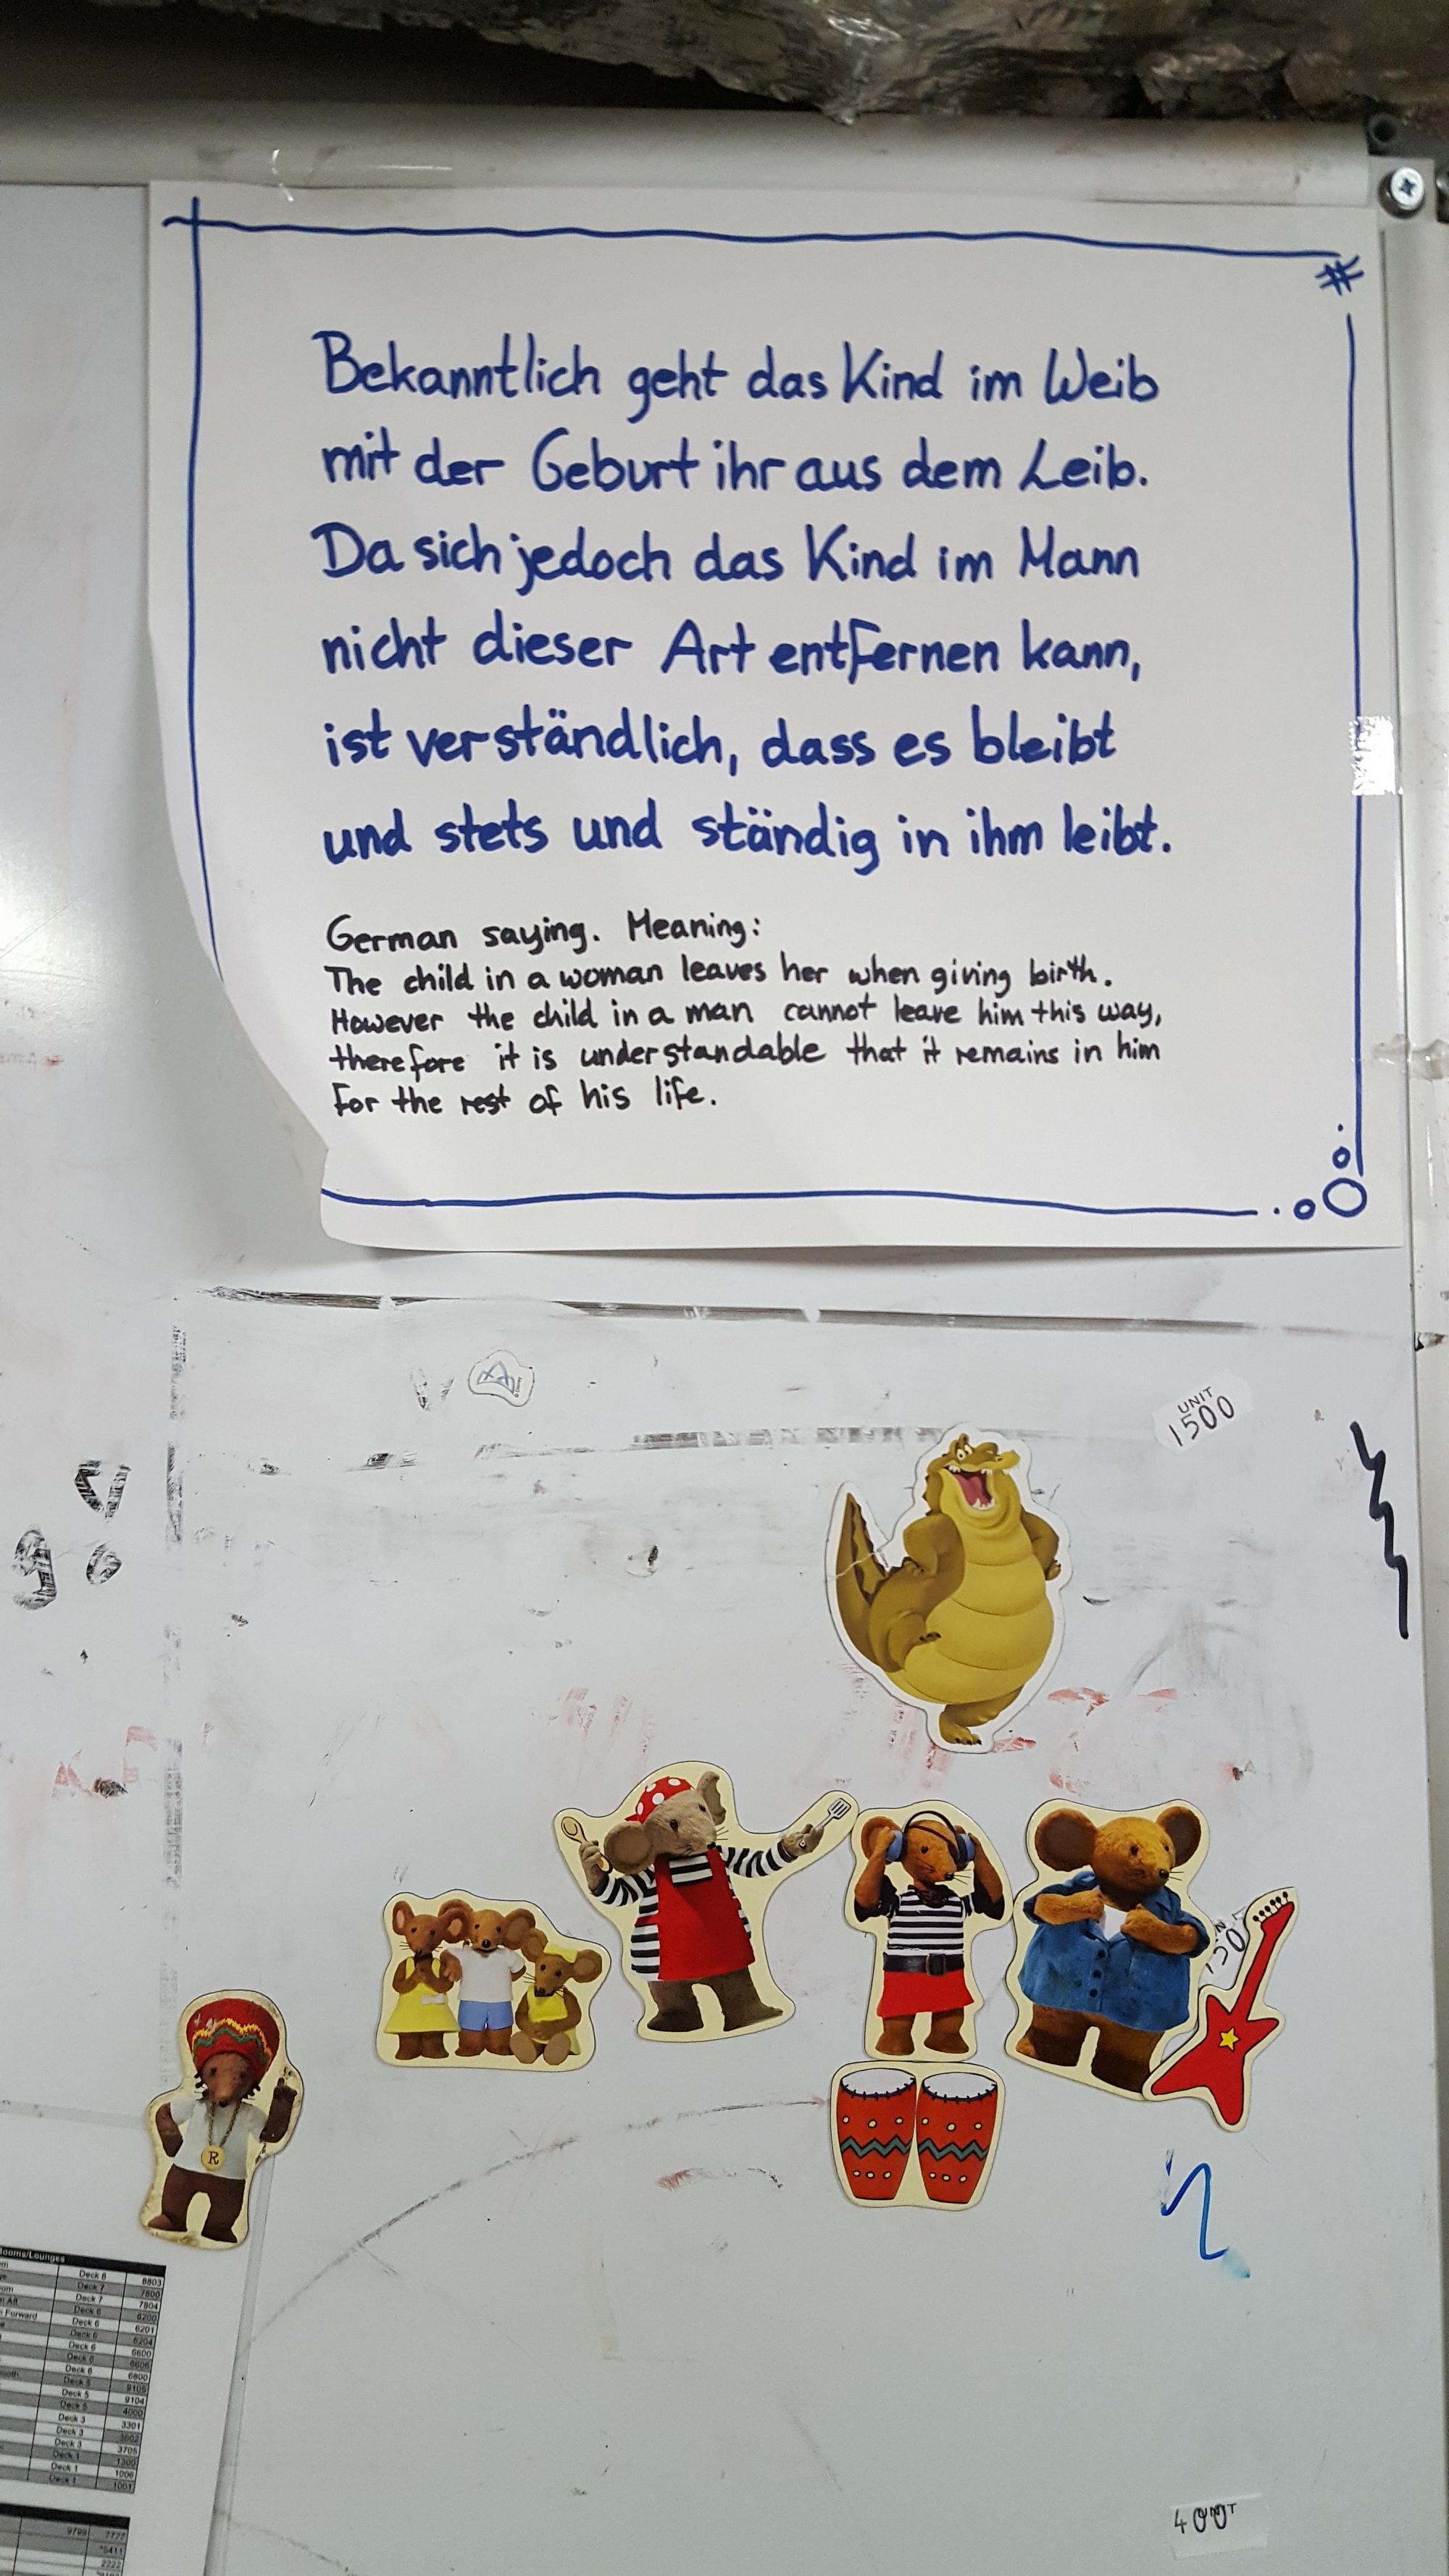 Bekanntlich geht das Kind im Weib
mit der Geburt ihr aus dem Leib.
Da sich jedoch das Kind im Mann
nicht dieser Art entfernen kann,
ist verständlich, dass es bleibt
und stets und ständig in ihm leibt.
German saying. Meaning:
The child in a woman leaves her when giving birth.
However the child in a man cannot leave him this way,
therefore it is understandable that it remains in him
for the rest of his life.
UNIT
1500
R
Rooms/Lounges
Deck 8 8803
Deck 7 7800
Deck 7 7804
Deck 6 6200
Forward Deck 6 6201
Deck 6 6204
Deck 6 6600
Deck 6
Deck 6 6800
Deck 5 9105
Deck 5 9104
Deck 5 4000
Deck 3 3301
Deck 3
Deck 3 3705
Deck 1 1300
Deck 1 1006
Deck 1 1001
9799 7777
*5411
2222
400